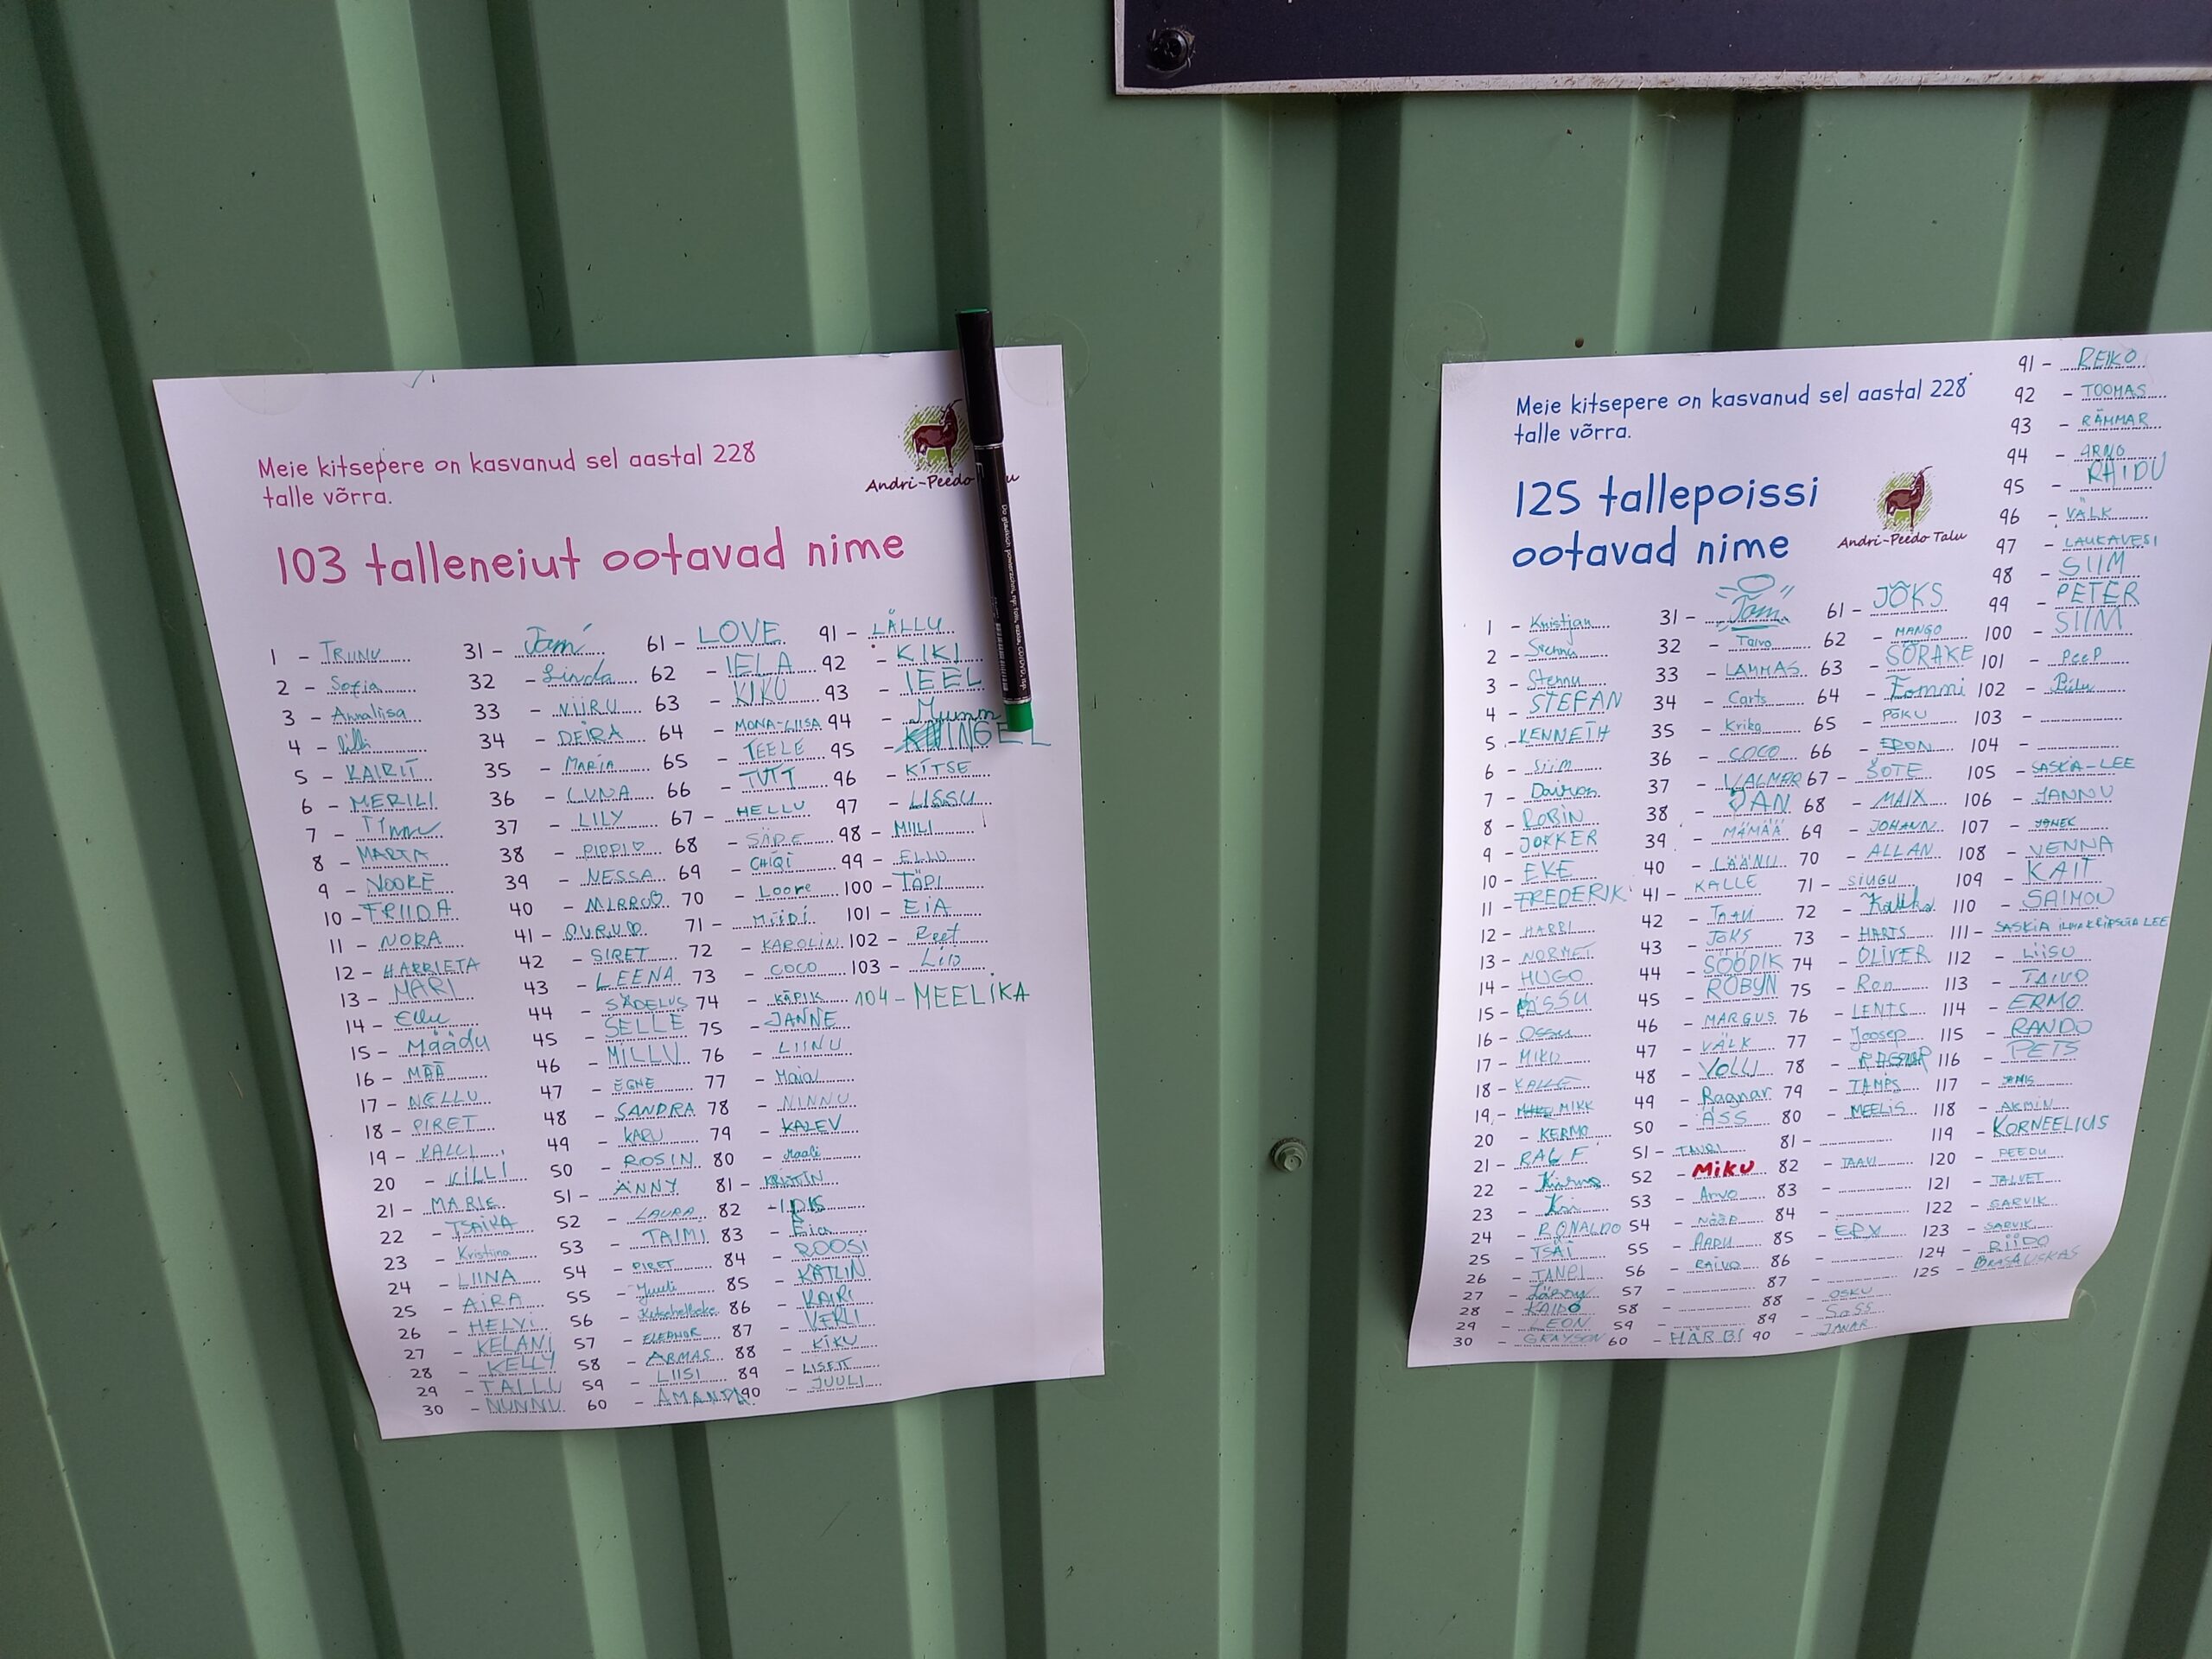 Meie kitsepere on kasvanud sel aastal 228
talle võrra.
Andri-Peedo
103 talleneiut ootavad nime
1 - TRIINU
2 - Sofia
3 - Annaliisa
4 -
5 - KAIRIT
6 - MERILI
7 -
8 - MARTA
9 - NOORE
10 - FRIIDA
11 - NORA
12 - HARRIETA
13 - MARI
14 - Ellu
15 - Määdu
16 - MÄÄ
17 - NELLU
18 - PIRET
19 - KALLI
20 - KILLI
21 - MARIE
22 - TSAIKA
23 - Kristiina
24 - LIINA
25 - AIRA
26 - HELYI
27 - KELANI
28 - KELLY
29 - TALLU
30 - NUNNU
31 - Jami
32 - Linda
33 - NIIRU
34 - DEIRA
35 - MARIA
36 - LUNA
37 - LILY
38 - PIPPI♡
39 - NESSA
40 - MIRRU♡
41 - PURU♡
42 - SIRET
43 - LEENA
44 - SÄDELUS
45 - SELLE
46 - MILLU
47 - EGNE
48 - SANDRA
49 - KARU
50 - ROSIN
51 - ÄNNY
52 - LAURA
53 - TAIMI
54 - PIRET
55 - Juuli
56 -
57 - ELEANOR
58 - ARMAS
59 - LIISI
60 - AMANDA
61 - LOVE
62 - IELA
63 - KIKU
64 - MONA-LIISA
65 - TEELE
66 - TUTT
67 - HELLU
68 - SÄDE
69 - CHIQI
70 - Loore
71 - MIIDI
72 - KAROLIN
73 - COCO
74 - KÄPIK
75 - JANNE
76 - LIINU
77 - Maia
78 - NINNU
79 - KALEV
80 - Maali
81 - KRISTIN
82 -
83 - Eia
84 - ROOSI
85 - KÄTLIN
86 - KAIRI
87 - VERLI
88 - KIKU
89 - LISETT
90 - JUULI
91 - LÄLLU
92 - KIKI
93 - IEEL
94 -
95 - INGEL
96 - KITSE
97 - LISSU
98 - MIILI
99 - ELLU
100 - TÄPI
101 - EIA
102 - Reet
103 -
104 - MEELIKA
Meie kitsepere on kasvanud sel aastal 228
talle võrra.
125 tallepoissi
ootavad nime
Andri-Peedo Talu
1 - Kristjan
2 -
3 - Stennu
4 - STEFAN
5 - KENNETH
6 - Siim
7 -
8 - ROBIN
9 - JOKKER
10 - EKE
11 - FREDERIK
12 - HARRI
13 - NORMET
14 - HUGO
15 -
16 - Ossu
17 - MIKU
18 - KALLE
19 - MIKK
20 - KERMO
21 - RALF
22 -
23 - Kai
24 - RONALDO
25 - TSÄI
26 - TANEL
27 -
28 - KAIDO
29 - LEON
30 - GRAYSON
31 - Jam
32 - Taivo
33 - LAMMAS
34 - Carts
35 - Kriko
36 - COCO
37 - VALMAR
38 - JAN
39 - MÄMÄÄ
40 - LÄÄNU
41 - KALLE
42 - TAAVI
43 - JOKS
44 - SÖÖDIK
45 - ROBYN
46 - MARGUS
47 - VÄLK
48 - VOLLI
49 - Ragnar
50 - ÄSS
51 - TAURI
52 - MIKU
53 - Arvo
54 - NÖÖP
55 - AADU
56 - RAIVO
57 -
58 -
59 -
60 - HÄRBI
61 - JÕKS
62 - MANGO
63 - SÕRAKE
64 - Tommi
65 - PÕKU
66 - ERON
67 - SOTE
68 - MAIX
69 - JOHANN
70 - ALLAN
71 - SIUGU
72 -
73 - HARTS
74 - OLIVER
75 - Ron
76 - LENTS
77 - Joosep
78 - RAGNAR
79 - TAMPS
80 - MEELIS
81 -
82 - TAAVI
83 -
84 -
85 - ERX
86 -
87 -
88 - OSKU
89 - SASS
90 - JANAR
91 - REIKO
92 - TOOMAS
93 - RÄMMAR
94 - ARNO
95 - RAIDU
96 - VÄLK
97 - LAUKAVESI
98 - SIIM
99 - PETER
100 - SIIM
101 - PEEP
102 -
103 -
104 -
105 - SASKIA-LEE
106 - JANNU
107 - JANEK
108 - VENNA
109 - KAIT
110 - SAIMON
111 - SASKIA ILMA KRIIPSUTA LEE
112 - LIISU
113 - TAIVO
114 - ERMO
115 - RANDO
116 - PETS
117 - JANIS
118 - ARMIN
119 - KORNEELIUS
120 - PEEDU
121 - TALVET
122 - SARVIK
123 - SARVIK
124 - RIIDO
125 - BRASAUSKAS